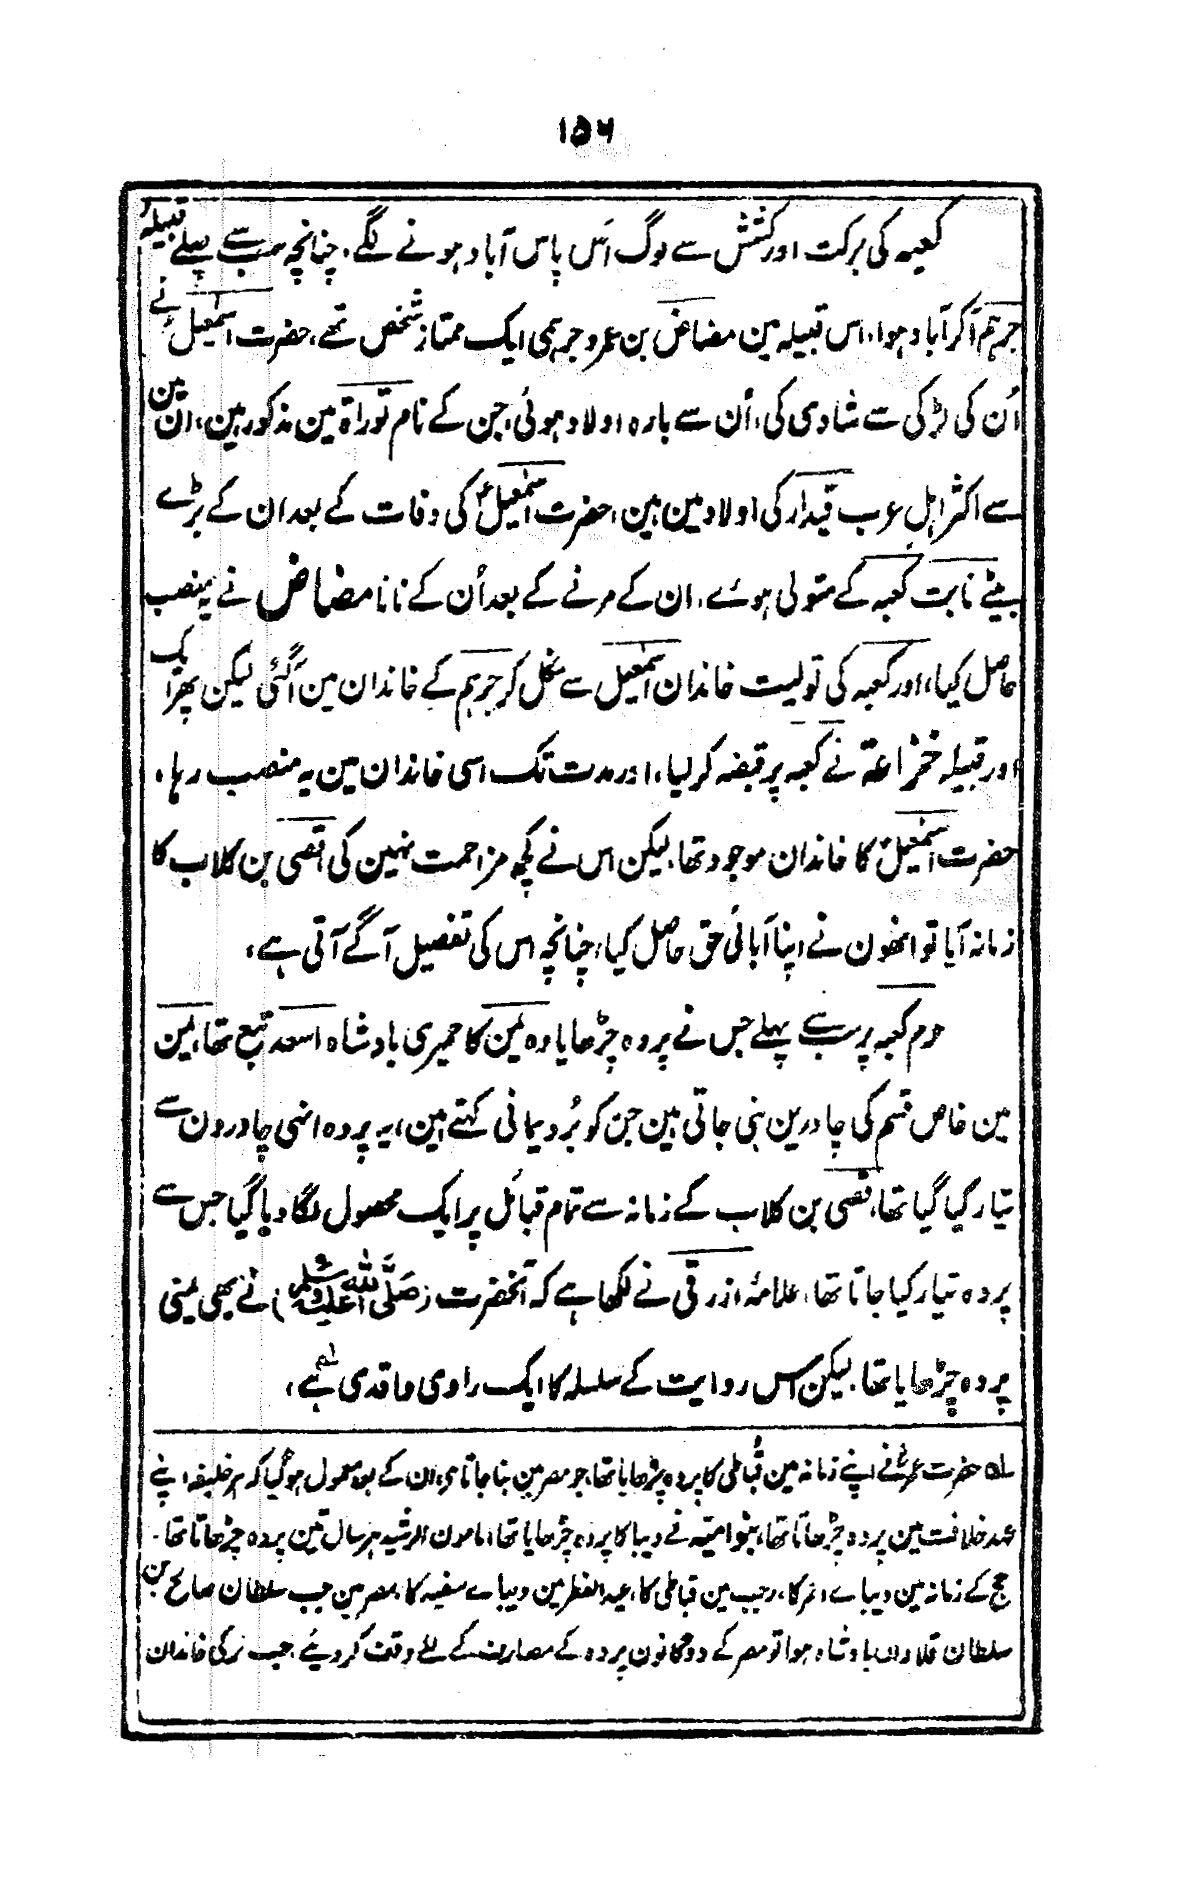 ۱۵۶
کعبہ کی برکت اور کشش سے لوگ اس پاس آباد ہونے لگے، چنانچہ سب سے پہلے قبیلۂ
جرہم آکر آباد ہوا، اس قبیلہ مین مضاض بن عمرو جرہمی ایک ممتاز شخص تھے، حضرت اسمٰعیلؑ نے
اُن کی لڑکی سے شادی کی، اُن سے بارہ اولاد ہوئی، جن کے نام توراۃ مین مذکور ہین، ان مین
سے اکثر اہل عرب قیدار کی اولاد مین ہین، حضرت اسمٰعیلؑ کی وفات کے بعد ان کے بڑے
بیٹے نابت کعبہ کے متولی ہوے، ان کے مرنے کے بعد اُن کے نانا مضاض نے یہ منصب
حاصل کیا، اور کعبہ کی تولیت خاندان اسمٰعیل سے نکل کر جرہم کے خاندان مین آگئی لیکن پھر ایک
اور قبیلہ خزاعۃ نے کعبہ پر قبضہ کر لیا، اور مدت تک اسی خاندان مین یہ منصب رہا،
حضرت اسمٰعیلؑ کا خاندان موجود تھا، لیکن اس نے کچھ مزاحمت نہین کی، قصی بن کلاب کا
زمانہ آیا تو انھون نے اپنا آبائی حق حاصل کیا، چنانچہ اس کی تفصیل آگے آتی ہے،
حرم کعبہ پر سب سے پہلے جس نے پردہ چڑھایا وہ یمن کا حمیری بادشاہ اسعد تبع تھا، یمن
مین خاص قسم کی چادرین بنی جاتی ہین جن کو بُرد یمانی کہتے ہین، یہ پردہ انہی چادرون سے
تیار کیا گیا تھا، قصی بن کلاب کے زمانہ سے تمام قبائل پر ایک محصول لگا دیا گیا جس سے
پردہ تیار کیا جاتا تھا، علامۂ ازرقی نے لکھا ہے کہ آنحضرت (صَلَّی اللہ عَلَیْہِ وسلم) نے بھی یمنی
پردہ چڑھایا تھا، لیکن اس روایت کے سلسلہ کا ایک راوی واقدی ہے لہ،
لہ حضرت عمرؓ نے اپنے زمانہ مین قُباطی کا پردہ چڑھایا تھا، جو مصر مین بنا جاتا ہی، ان کے بعد معمول ہوگیا کہ ہر خلیفہ اپنے
عہد خلافت مین پردہ چڑھاتا تھا، بنو امیّہ نے دیبا کا پردہ چڑھایا تھا، مامون الرشید ہر سال تین پردہ چڑھاتا تھا۔
حج کے زمانہ مین دیباے احمر کا، رجب مین قباطی کا، عید الفطر مین دیباے سفید کا، مصر مین جب سلطان صالح بن
سلطان قلاون بادشاہ ہوا تو مصر کے دو گانون پردہ کے مصارف کے لئے وقف کر دیئے، جب ترکی خاندان